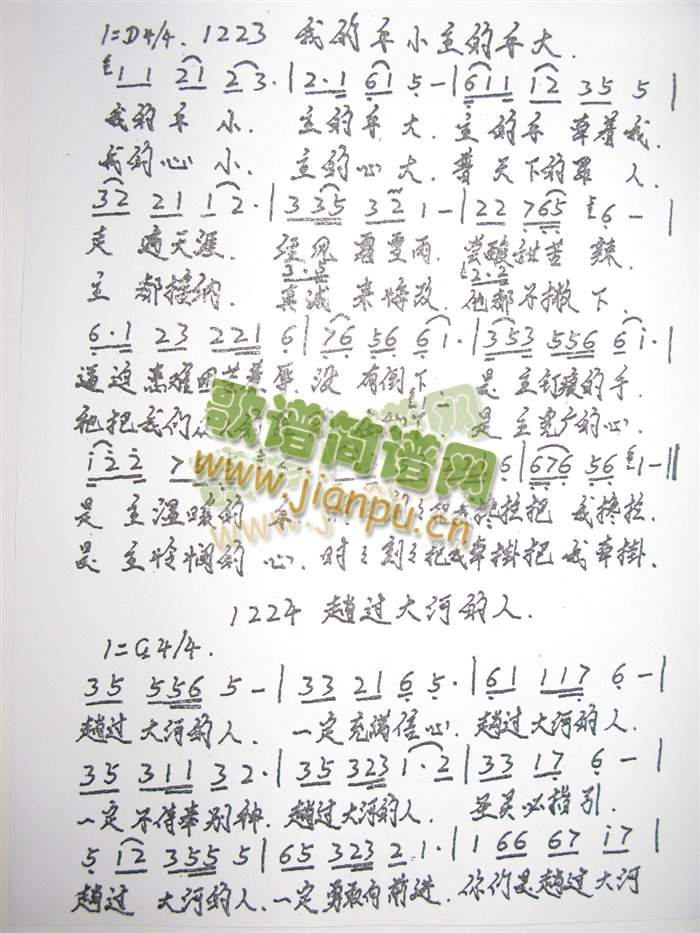 1=D4/4. 1223 我的手小主的手大.
1 1 21 23· | 2·1 61 5 - | 611 12 35 5 |
我的手 小. 主的手 大. 主 的手 牵着我.
我的心 小. 主的心 大. 普 天下的罪 人.
32 21 12· | 3 35 32 1 - | 22 765 6 - |
走 遍天涯. 经风 霜雪雨. 尝酸甜苦 辣.
3·5 2·2
主 都接纳. 真诚 来悔改. 他都不撇下.
6·1 23 221 6 | 76 56 61· | 353 556 61· |
逼迫患难 没 有倒下 是 主钉痕的手.
祂把我们 1 - 是 主宽广的心.
122 7 6 | 676 56 1 - ||
是 主温暖的 手. 扶拉把 我扶拉.
是 主怜悯的 心. 时时刻刻把我牵掛把 我牵掛.
1224 趟过大河的人.
1=G 4/4.
35 556 5 - | 33 21 6 5· | 61 117 6 - |
趟过 大河的人. 一定充满信心. 趟过大河的人.
35 311 3 2· | 35 323 1·2 | 33 17 6 - |
一定不侍奉别神. 趟过大河的人. 圣灵必指引.
5 12 355 5 | 65 323 2 1· | 1 66 67 17 |
趟过 大河的人. 一定勇敢向前进. 你们是趟过大河
歌谱简谱网
www.jianpu.cn